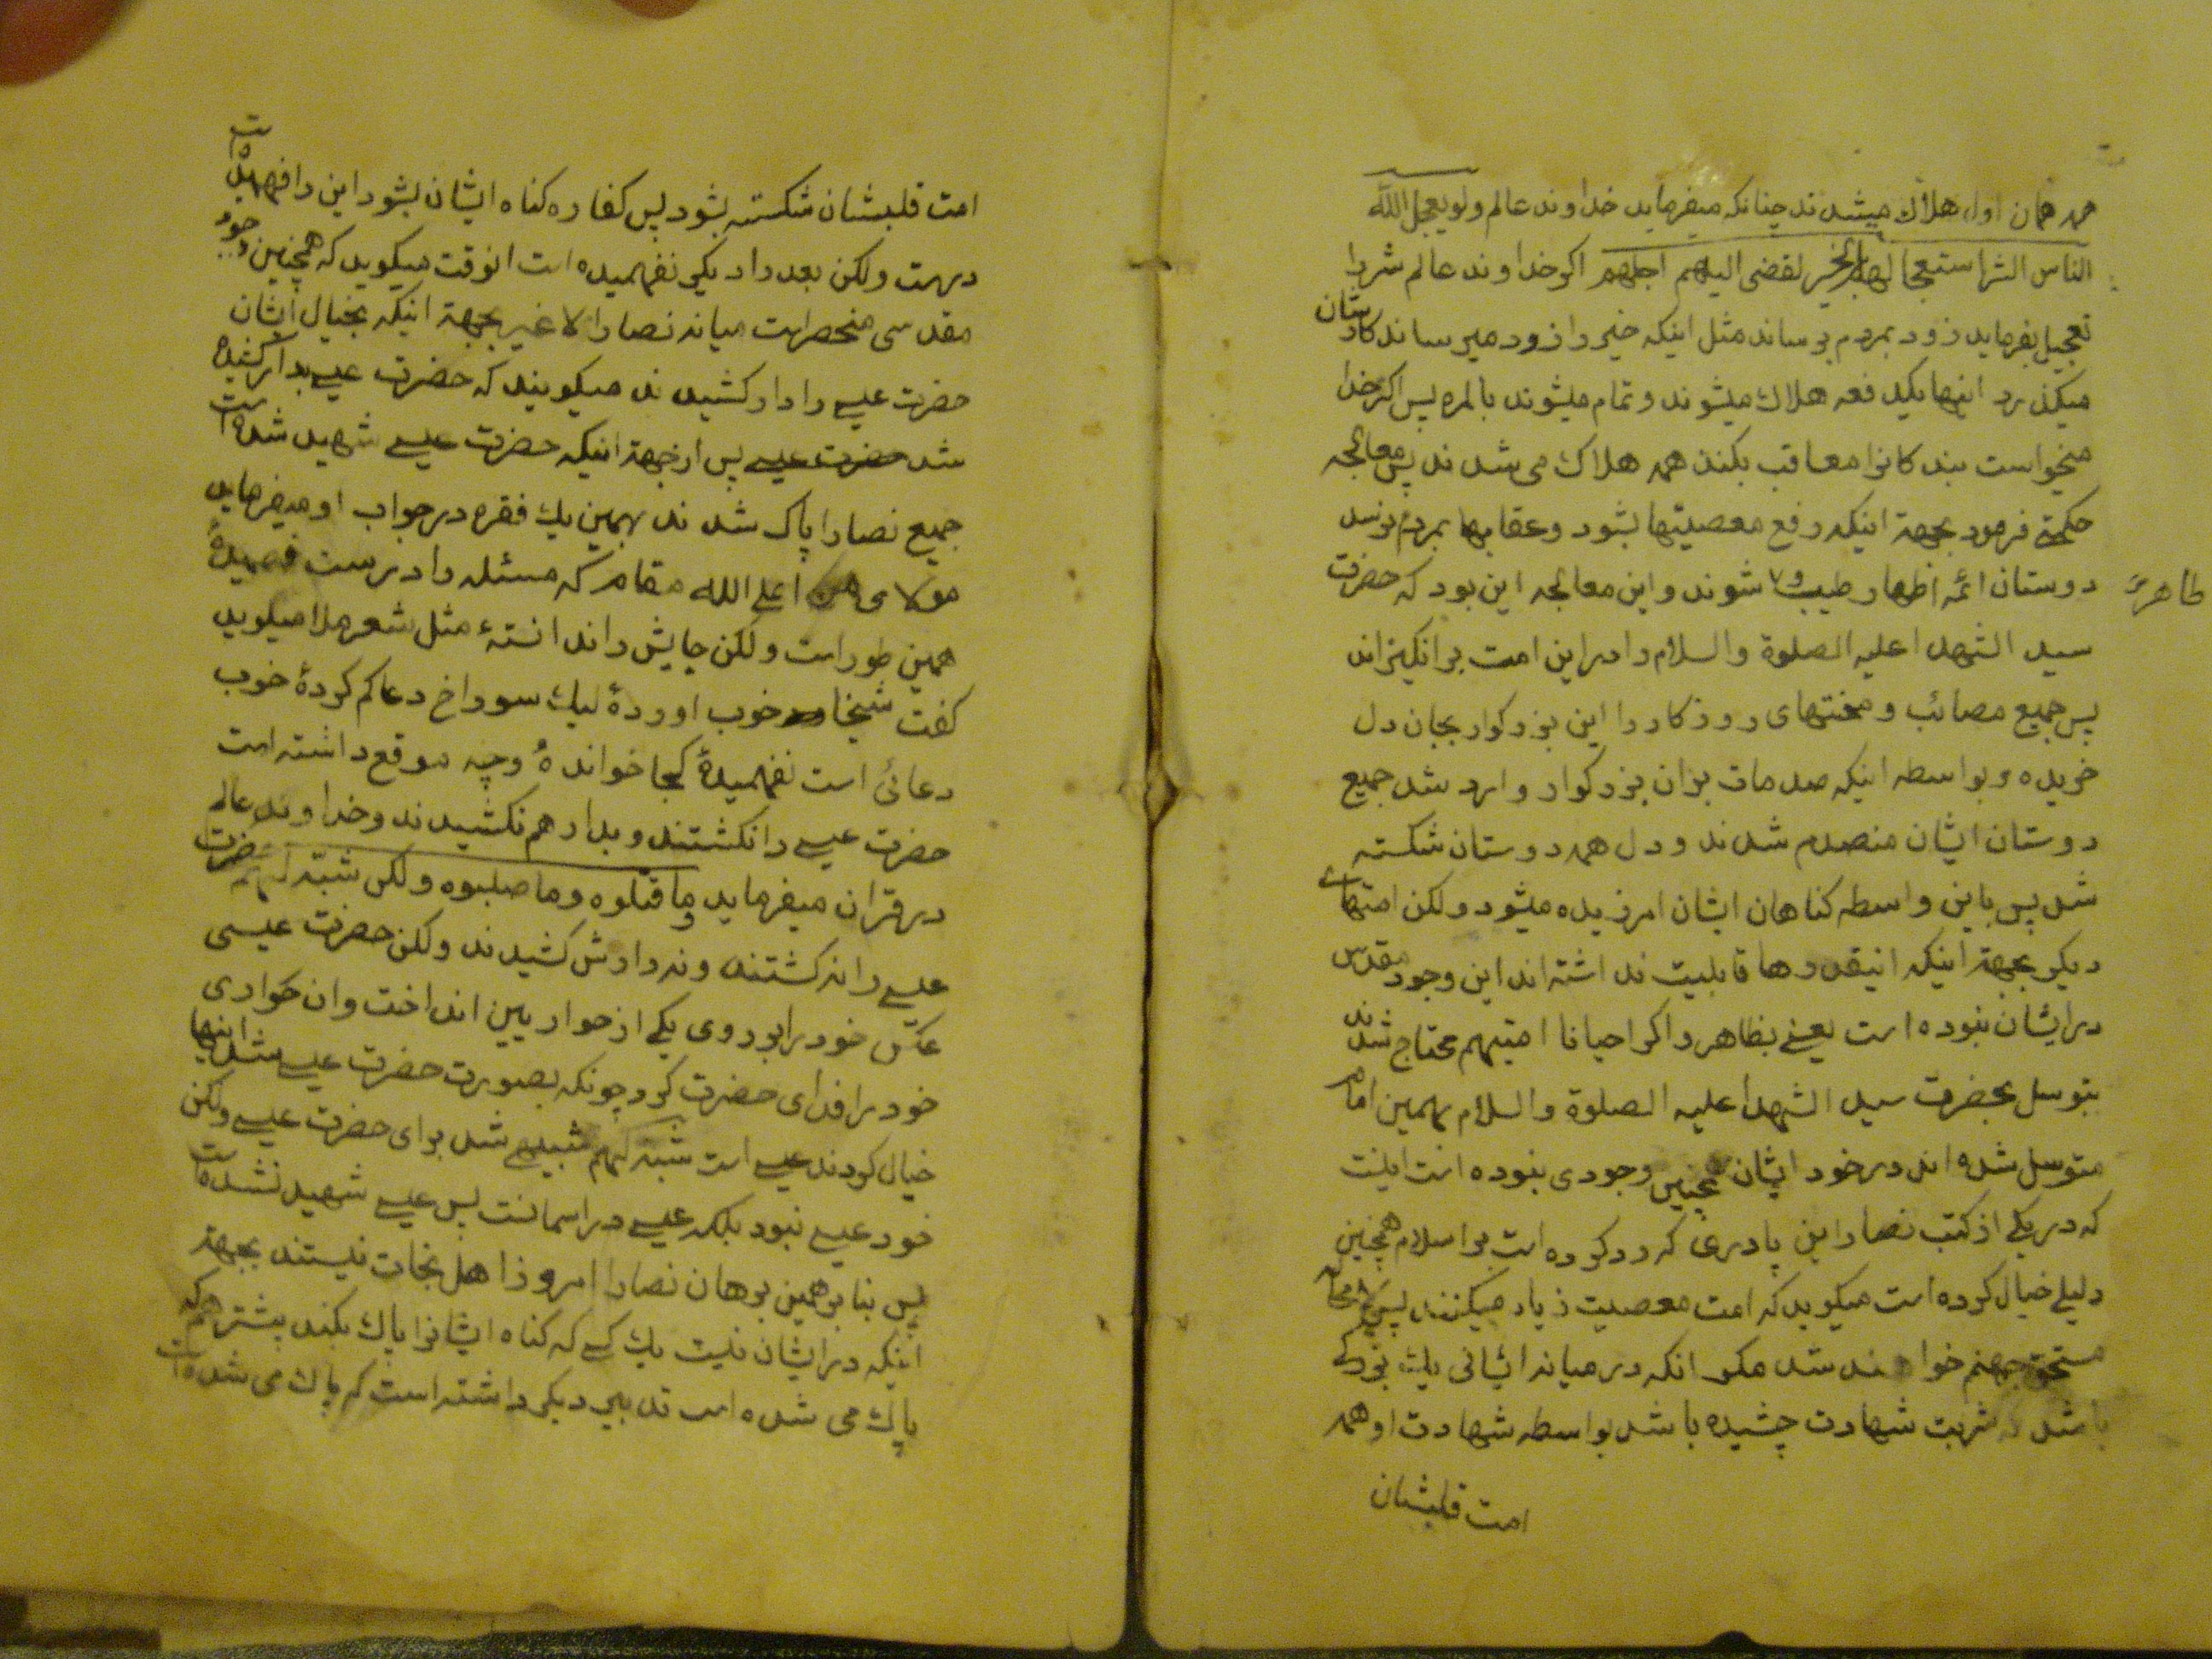 همه همان اول هلاك میشدند چنانکه میفرماید خداوند عالم ولو یعجل الله
الناس الشر استعجالهم بالخیر لقضی الیهم اجلهم اکر خداوند عالم شر را
تعجیل بفرماید زود بمردم برساند مثل اینکه خیر را زود میرساند کارشان
میکذرد اینها یکدفعه هلاك میشوند و تمام میشوند بالمره پس اکر خدا
میخواست بندکانرا معاقب بکند همه هلاك می شدند پس معالجه
حکمتی فرمود بجهة اینکه رفع معصیتها بشود و عقابها بمردم نرسد
دوستان ائمه اظهار طیب و شوند و این معالجه این بود که حضرت
طاهر
سید الشهدا علیه الصلوة والسلام را در این امت برانکیزاند
پس جمیع مصائب و محنتهای روزکار را این بزرکوار بجان دل
خریده و بواسطه اینکه صدمات بران بزرکوار وارد شد جمیع
دوستان ایشان منصدم شدند و دل همه دوستان شکسته
شد پس باین واسطه کناهان ایشان امرزیده میشود ولکن امتهای
دیکر بجهة اینکه اینقدرها قابلیت نداشته اند این وجود مقدس
در ایشان نبوده است یعنی بظاهر و اکر احیانا امتیهم محتاج شدند
بتوسل بحضرت سید الشهدا علیه الصلوة والسلام بهمین امام
متوسل شده اند در خود ایشان چنین وجودی نبوده است اینست
که در یکی از کتب نصارا این پادری که رد کرده است بر اسلام همچنین
دلیلی خیال کرده است میکوید که امت معصیت زیاد میکنند پس
مستحق جهنم خواهند شد مکر انکه در میانه ایشانی یك بزرکی
باشد که شربت شهادت چشیده باشد بواسطه شهادت او همه
امت قلبشان
امت قلبشان شکسته بشود پس کفاره کناه ایشان بشود این را فهمیده است
درست ولکن بعد را دیکر نفهمیده است انوقت میکوید که همچنین وجود
مقدسی منحصر است میانه نصارا لا غیر بجهة اینکه بخیال ایشان
حضرت عیسی را دار کشیدند میکویند که حضرت عیسی بدار کشیده
شد حضرت عیسی پس از جهة اینکه حضرت عیسی شهید شده است
جمیع نصارا پاک شدند بهمین یك فقره در جواب او میفرماید
مولای من اعلی الله مقامه که مسئله را درست فهمیدهٔ
همین طور است ولکن جایش را ندانستهٔ مثل شعر ملا میکوید
کفت شیخا خوب اوردهٔ لیك سوراخ دعا کم کردهٔ خوب
دعائی است نفهمیدهٔ کجا خواندهٔ و چه موقع داشته است
حضرت عیسی را نکشتند و بدار هم نکشیدند و خداوند عالم
در قران میفرماید وما قتلوه وما صلبوه ولکن شبّه لهم حضرت
عیسی را نه کشتند و نه دارش کشیدند ولکن حضرت عیسی
عکس خود را بر روی یکی از حواریین انداخت و ان حواری
خود را فدای حضرت کرد چونکه بصورت حضرت عیسی شد اینها
خیال کردند عیسی است شبه لهم شبیهی شد برای حضرت عیسی ولکن
خود عیسی نبود بلکه عیسی در اسمانست پس عیسی شهید نشده است
پس بنا بر همین برهان نصارا امروز اهل نجات نیستند بجهة
اینکه در ایشان نیست یك کسی که کناه ایشانرا پاك بکند پیشتر هم که
پاك می شده است تدبیر دیکر داشته است که پاك می شده است